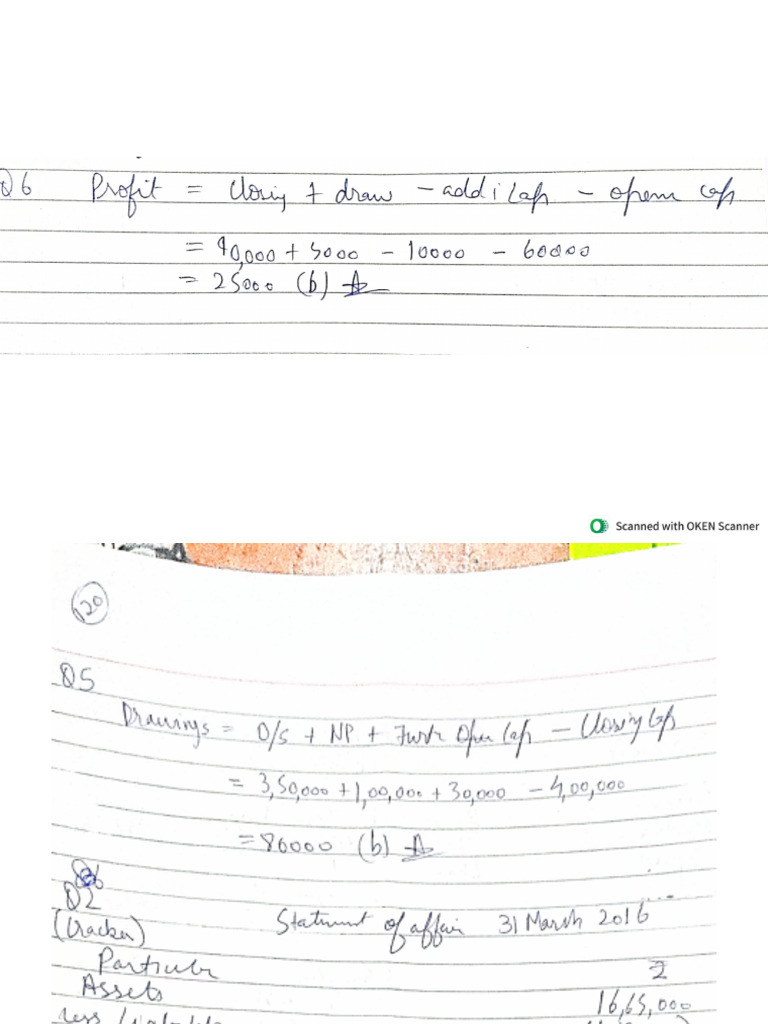 Q6 Profit = Closing + draw - addi Cap - openn cap
= 90,000 + 5000 - 10000 - 60000
= 25000 (b) A
Scanned with OKEN Scanner
120
Q5
Drawings = O/S + NP + Furth Open Cap - Closing Cap
= 3,50,000 + 1,00,000 + 30,000 - 4,00,000
= 80000 (b) A
Q2
(Cracker) Statment of affair 31 March 2016
Particular ₹
Assets 16,65,000
Less